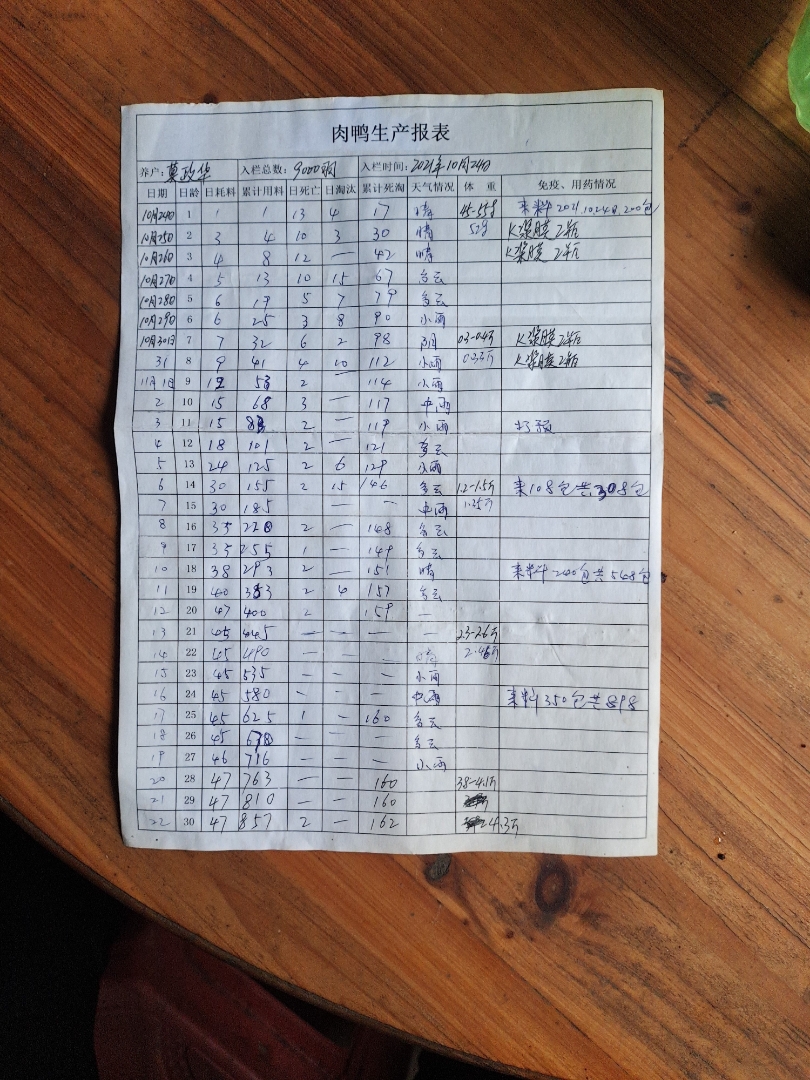 肉鸭生产报表
养户: 莫政华 入栏总数: 9000羽 入栏时间: 2021年10月24日
日期 日龄 日耗料 累计用料 日死亡 日淘汰 累计死淘 天气情况 体 重 免疫、用药情况
10月24日 1 1 1 13 4 17 晴 45-55g 来料2021.10.24日.200包
10月25日 2 3 4 10 3 30 晴 52g K浆膜2瓶
10月26日 3 4 8 12 — 42 晴 K浆膜2瓶
10月27日 4 5 13 10 15 67 多云
10月28日 5 6 19 5 7 79 多云
10月29日 6 6 25 3 8 90 小雨
10月30日 7 7 32 6 2 98 阴 0.3-0.4斤 K浆膜2瓶
31 8 9 41 4 10 112 小雨 0.33斤 K浆膜2瓶
11月1日 9 12 53 2 114 小雨
2 10 15 68 3 — 117 中雨
3 11 15 83 2 — 119 小雨
4 12 18 101 2 — 121 多云
5 13 24 125 2 6 129 小雨
6 14 30 155 2 15 146 多云 1.2-1.5斤 来108包共308包
7 15 30 185 — — 中雨 1.25斤
8 16 35 220 2 — 148 多云
9 17 35 255 1 — 149 多云
10 18 38 293 2 — 151 晴 来料240包共548包
11 19 40 353 2 4 157 多云
12 20 47 400 2 159 —
13 21 45 445 — — — — 2.3-2.6斤
14 22 45 490 — — — 晴 2.46斤
15 23 45 535 — — — 小雨
16 24 45 580 — — — 中雨 来料350包共898
17 25 45 625 1 — 160 多云
18 26 45 670 — — — 多云
19 27 46 716 — — — 小雨
20 28 47 763 — — 160 3.8-4.1斤
21 29 47 810 — — 160
22 30 47 857 2 — 162 4.3斤